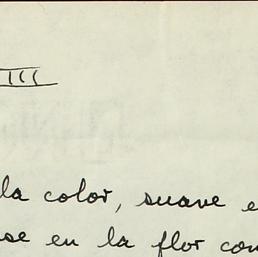 III
la color, suave e
se en la flor con